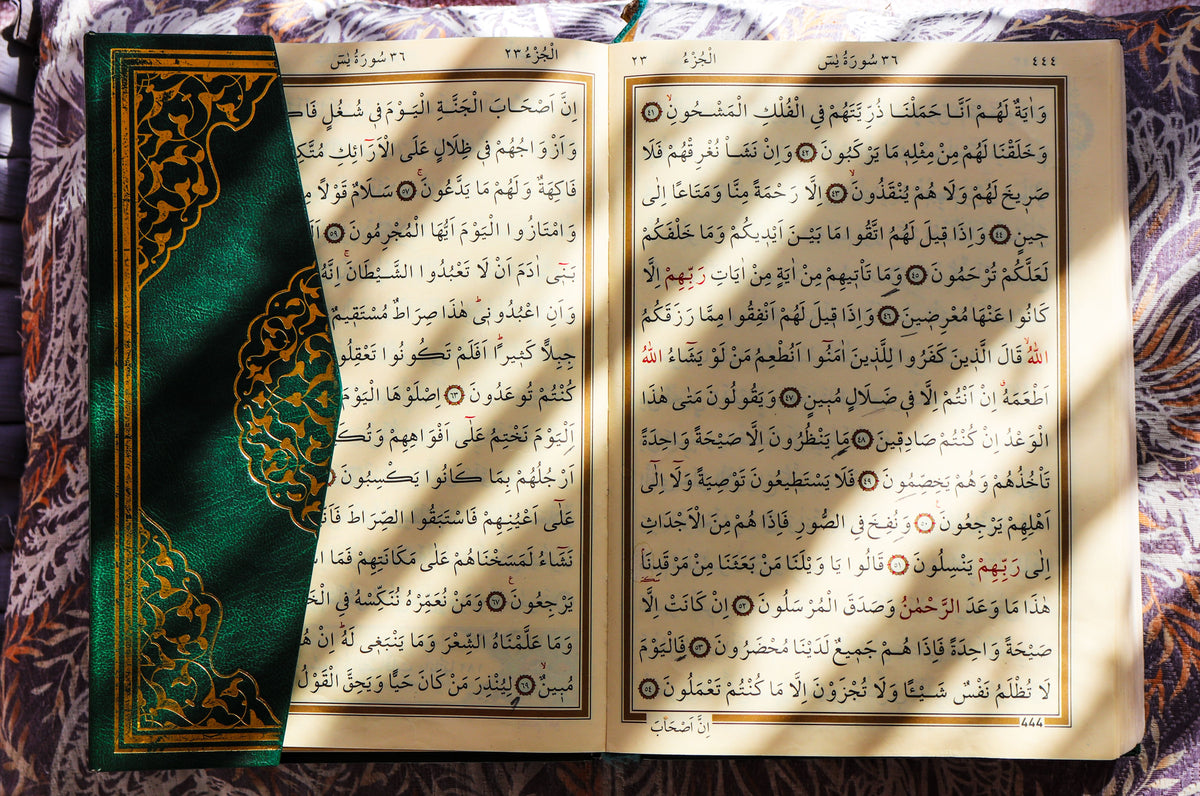 ٤٤٤ ٣٦ سُورَةُ يٰسٓ اَلْجُزْءُ ٢٣
وَاٰيَةٌ لَهُمْ اَنَّا حَمَلْنَا ذُرِّيَّتَهُمْ فِي الْفُلْكِ الْمَشْحُونِۙ ٤١
وَخَلَقْنَا لَهُمْ مِنْ مِثْلِهٖ مَا يَرْكَبُونَ ٤٢ وَاِنْ نَشَأْ نُغْرِقْهُمْ فَلَا
صَرٖيخَ لَهُمْ وَلَا هُمْ يُنْقَذُونَۙ ٤٣ اِلَّا رَحْمَةً مِنَّا وَمَتَاعًا اِلٰى
حٖينٍ ٤٤ وَاِذَا قٖيلَ لَهُمُ اتَّقُوا مَا بَيْنَ اَيْدٖيكُمْ وَمَا خَلْفَكُمْ
لَعَلَّكُمْ تُرْحَمُونَ ٤٥ وَمَا تَأْتٖيهِمْ مِنْ اٰيَةٍ مِنْ اٰيَاتِ رَبِّهِمْ اِلَّا
كَانُوا عَنْهَا مُعْرِضٖينَ ٤٦ وَاِذَا قٖيلَ لَهُمْ اَنْفِقُوا مِمَّا رَزَقَكُمُ
اللّٰهُۙ قَالَ الَّذٖينَ كَفَرُوا لِلَّذٖينَ اٰمَنُٓوا اَنُطْعِمُ مَنْ لَوْ يَشَٓاءُ اللّٰهُ
اَطْعَمَهُۗ اِنْ اَنْتُمْ اِلَّا فٖي ضَلَالٍ مُبٖينٍ ٤٧ وَيَقُولُونَ مَتٰى هٰذَا
الْوَعْدُ اِنْ كُنْتُمْ صَادِقٖينَ ٤٨ مَا يَنْظُرُونَ اِلَّا صَيْحَةً وَاحِدَةً
تَأْخُذُهُمْ وَهُمْ يَخِصِّمُونَ ٤٩ فَلَا يَسْتَطٖيعُونَ تَوْصِيَةً وَلَٓا اِلٰٓى
اَهْلِهِمْ يَرْجِعُونَ ٥٠ وَنُفِخَ فِي الصُّورِ فَاِذَا هُمْ مِنَ الْاَجْدَاثِ
اِلٰى رَبِّهِمْ يَنْسِلُونَ ٥١ قَالُوا يَا وَيْلَنَا مَنْ بَعَثَنَا مِنْ مَرْقَدِنَا
هٰذَا مَا وَعَدَ الرَّحْمٰنُ وَصَدَقَ الْمُرْسَلُونَ ٥٢ اِنْ كَانَتْ اِلَّا
صَيْحَةً وَاحِدَةً فَاِذَا هُمْ جَمٖيعٌ لَدَيْنَا مُحْضَرُونَ ٥٣ فَالْيَوْمَ
لَا تُظْلَمُ نَفْسٌ شَيْـًٔا وَلَا تُجْزَوْنَ اِلَّا مَا كُنْتُمْ تَعْمَلُونَ ٥٤
444 اِنَّ اَصْحَابَ
اَلْجُزْءُ ٢٣ ٣٦ سُورَةُ يٰسٓ
اِنَّ اَصْحَابَ الْجَنَّةِ الْيَوْمَ فٖي شُغُلٍ
وَاَزْوَاجُهُمْ فٖي ظِلَالٍ عَلَى الْاَرَٓائِكِ
فَاكِهَةٌ وَلَهُمْ مَا يَدَّعُونَۚ ٥٧ سَلَامٌ قَوْلًا
وَامْتَازُوا الْيَوْمَ اَيُّهَا الْمُجْرِمُونَ ٥٩
بَنٖٓي اٰدَمَ اَنْ لَا تَعْبُدُوا الشَّيْطَانَۚ اِنَّهُ
وَاَنِ اعْبُدُونٖيۜ هٰذَا صِرَاطٌ مُسْتَقٖيمٌ
جِبِلًّا كَثٖيرًاۜ اَفَلَمْ تَكُونُوا
كُنْتُمْ تُوعَدُونَ ٦٣ اِصْلَوْهَا الْيَوْمَ
اَلْيَوْمَ نَخْتِمُ عَلٰٓى اَفْوَاهِهِمْ
اَرْجُلُهُمْ بِمَا كَانُوا يَكْسِبُونَ
عَلٰٓى اَعْيُنِهِمْ فَاسْتَبَقُوا الصِّرَاطَ
نَشَٓاءُ لَمَسَخْنَاهُمْ عَلٰى مَكَانَتِهِمْ فَمَا
يَرْجِعُونَ ٦٧ وَمَنْ نُعَمِّرْهُ نُنَكِّسْهُ فِي
وَمَا عَلَّمْنَاهُ الشِّعْرَ وَمَا يَنْبَغٖي لَهُۜ اِنْ
مُبٖينٌۙ ٦٩ لِيُنْذِرَ مَنْ كَانَ حَيًّا وَيَحِقَّ الْقَوْلُ